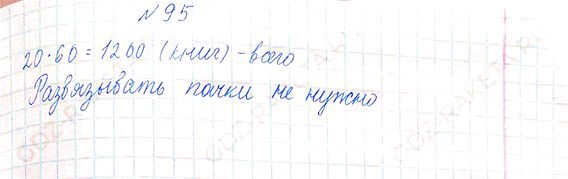 №95
20·60=1200 (книг) - всего
Развязывать пачки не нужно